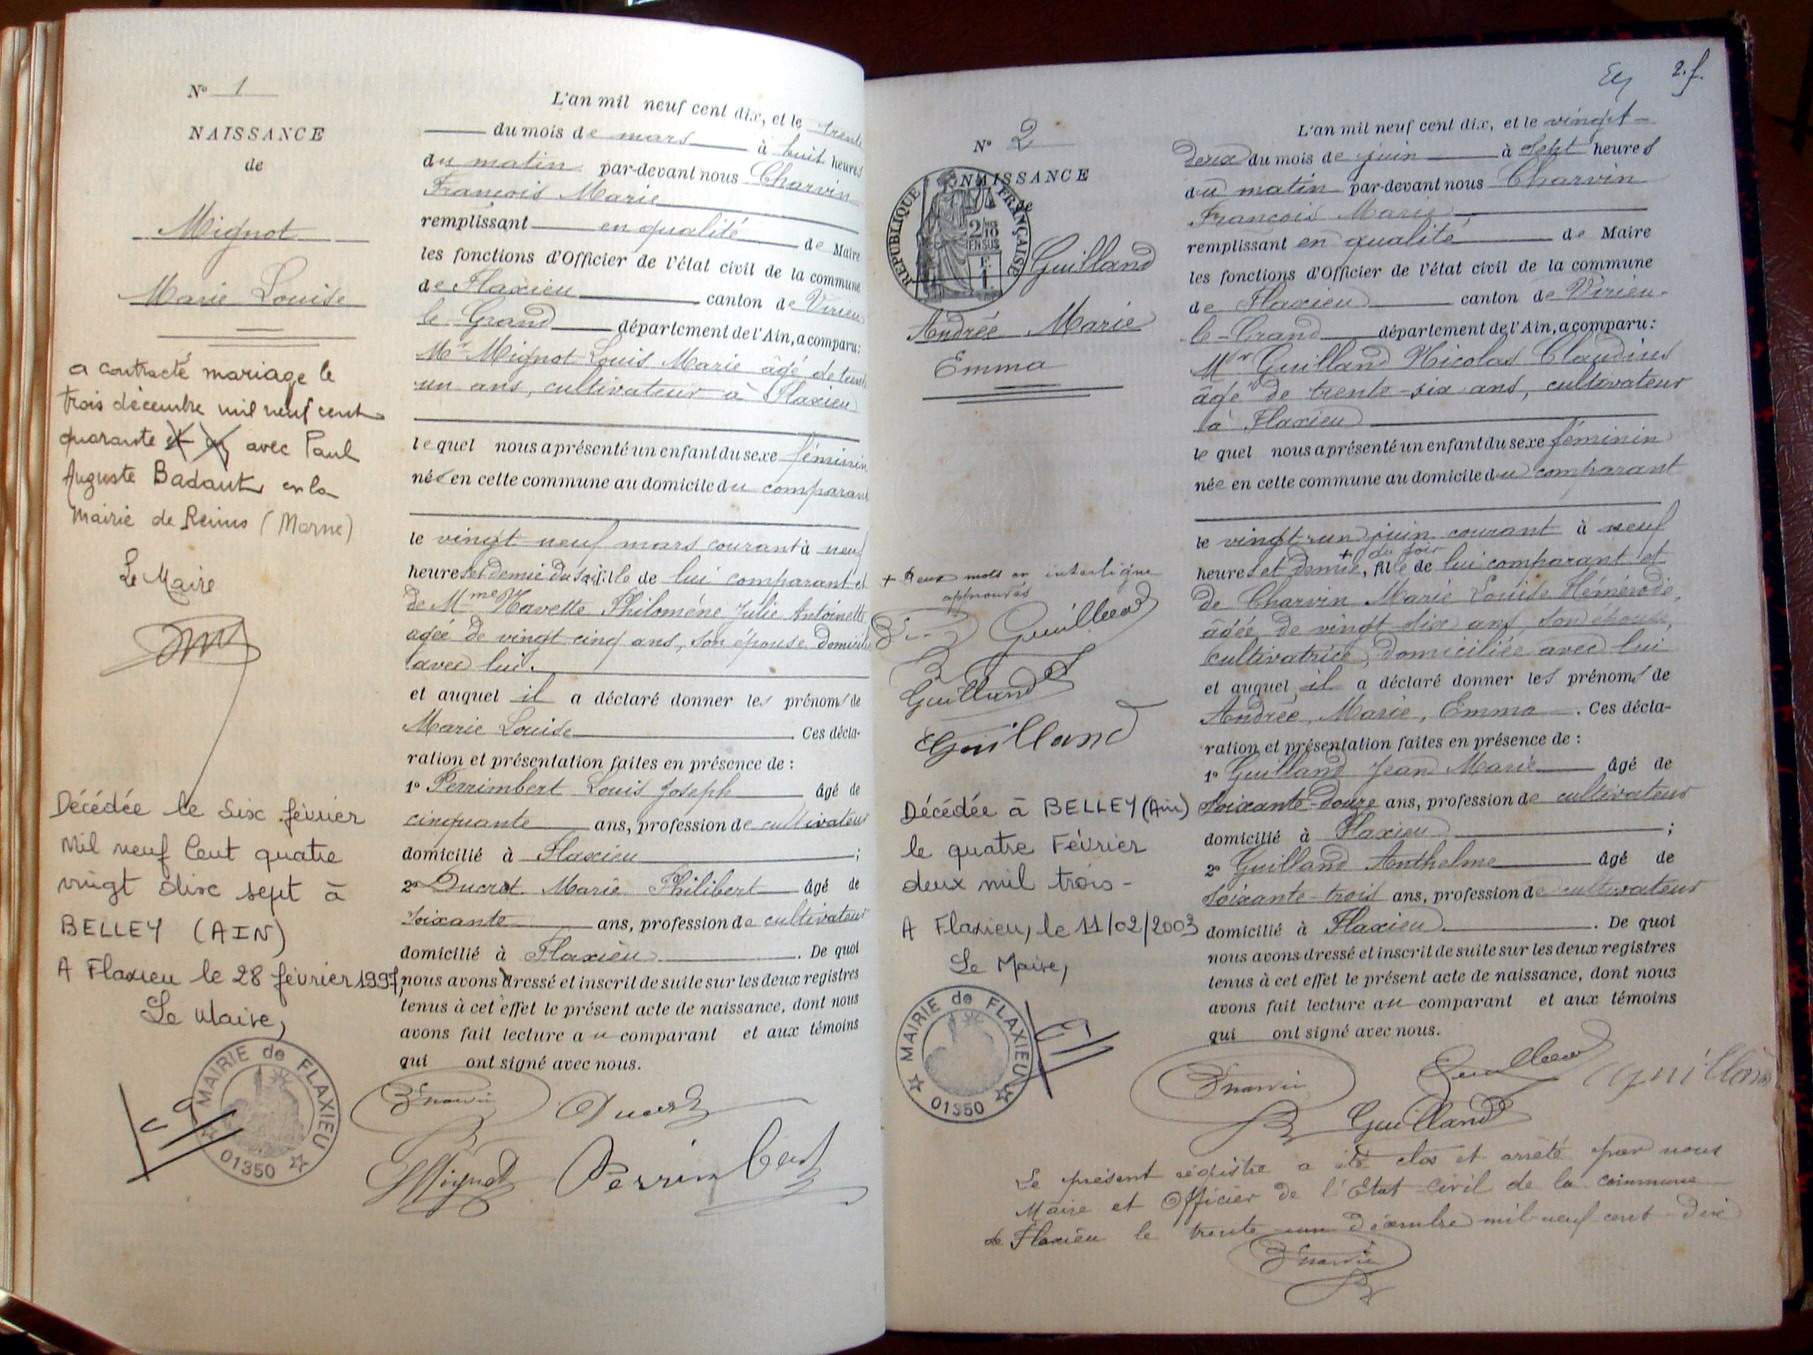 N° 1
NAISSANCE
de
Mignot
Marie Louise
a contracté mariage le
trois décembre mil neuf cent
quarante et un avec Paul
Auguste Badaut en la
Mairie de Reims (Marne)
Le Maire
Décédée le six février
Mil neuf Cent quatre
vingt dix sept à
BELLEY (AIN)
A Flaxieu le 28 février 1997,
Le Maire,
MAIRIE de FLAXIEU
01350
L'an mil neuf cent dix, et le trente
du mois de mars à huit heures
du matin par-devant nous Charvin
François Marie
remplissant en qualité de Maire
les fonctions d'Officier de l'état civil de la commune
de Flaxieu canton de Virieu
le Grand département de l'Ain, a comparu:
Mr Mignot Louis Marie âgé de trente
un ans, cultivateur à Flaxieu
le quel nous a présenté un enfant du sexe féminin
née en cette commune au domicile du comparant
le vingt neuf mars courant à neuf
heures et demie du soir, fille de lui comparant et
de Mme Navette Philomène Julie Antoinette
agée de vingt cinq ans, son épouse domiciliée
avec lui.
et auquel il a déclaré donner les prénoms de
Marie Louise. Ces décla-
ration et présentation faites en présence de :
1° Perrimbert Louis Joseph âgé de
cinquante ans, profession de cultivateur
domicilié à Flaxieu ;
2° Ducrot Marie Philibert âgé de
soixante ans, profession de cultivateur
domicilié à Flaxieu. De quoi
nous avons dressé et inscrit de suite sur les deux registres
tenus à cet effet le présent acte de naissance, dont nous
avons fait lecture au comparant et aux témoins
qui ont signé avec nous.
Charvin Ducrot
Mignot Perrimbert
2. f.
N° 2
NAISSANCE
de
REPUBLIQUE FRANÇAISE
2/10 EN SUS
F. 1
Guilland
Andrée Marie
Emma
+ Deux mots en interligne
approuvés
Guilland
Guilland
Guilland
Décédée à BELLEY (Ain)
le quatre Février
deux mil trois-
A Flaxieu, le 11/02/2003
Le Maire,
MAIRIE de FLAXIEU
01350
L'an mil neuf cent dix, et le vingt-
deux du mois de juin à sept heures
du matin par-devant nous Charvin
François Marie
remplissant en qualité de Maire
les fonctions d'Officier de l'état civil de la commune
de Flaxieu canton de Virieu-
le-Grand département de l'Ain, a comparu:
Mr Guilland Nicolas Claudius
âgé de trente-six ans, cultivateur
à Flaxieu
le quel nous a présenté un enfant du sexe féminin
née en cette commune au domicile du comparant
le vingt-un juin courant à neuf
+ du soir
heures et demie, fille de lui comparant et
de Charvin Marie Louise
âgée de vingt six ans son épouse,
cultivatrice, domiciliée avec lui
et auquel il a déclaré donner les prénoms de
Andrée, Marie, Emma. Ces décla-
ration et présentation faites en présence de :
1° Guilland Jean Marie âgé de
soixante-douze ans, profession de cultivateur
domicilié à Flaxieu ;
2° Guilland Anthelme âgé de
soixante-trois ans, profession de cultivateur
domicilié à Flaxieu. De quoi
nous avons dressé et inscrit de suite sur les deux registres
tenus à cet effet le présent acte de naissance, dont nous
avons fait lecture au comparant et aux témoins
qui ont signé avec nous.
Charvin Guilland Guilland
Guilland
Le présent registre a été clos et arrêté par nous
Maire et Officier de l'Etat civil de la commune
de Flaxieu le trente-un décembre mil-neuf-cent-dix
Charvin